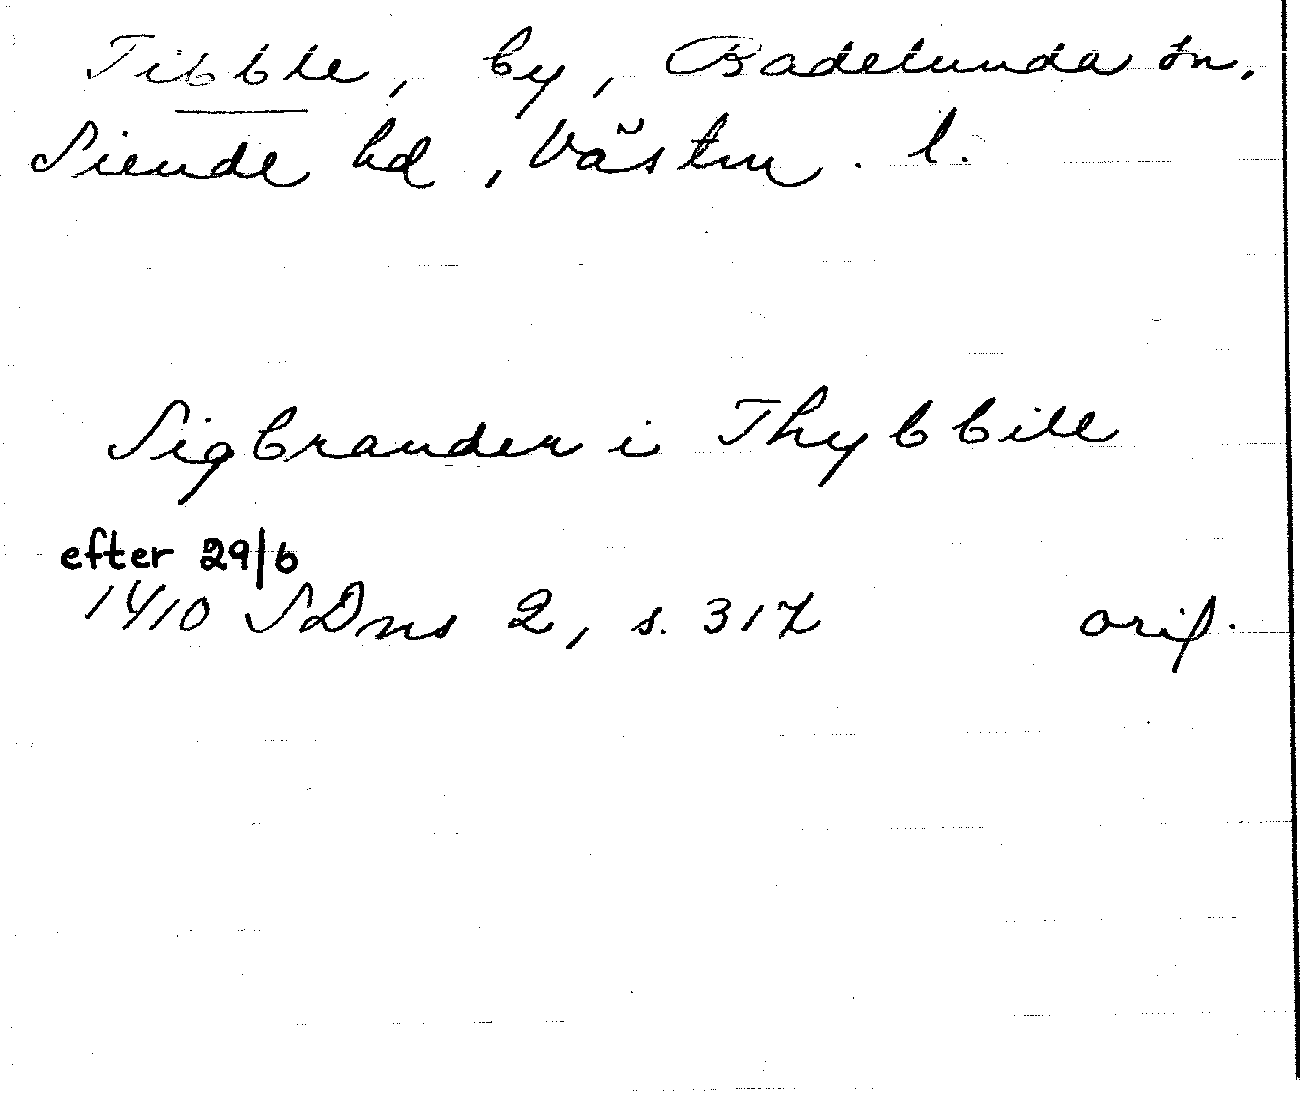 Tibble, by, Badelunda sn,
Siende hd, Västm. l.
Sigbrander i Thybbile
efter 29/6
1410 SDns 2, s. 317 orig.